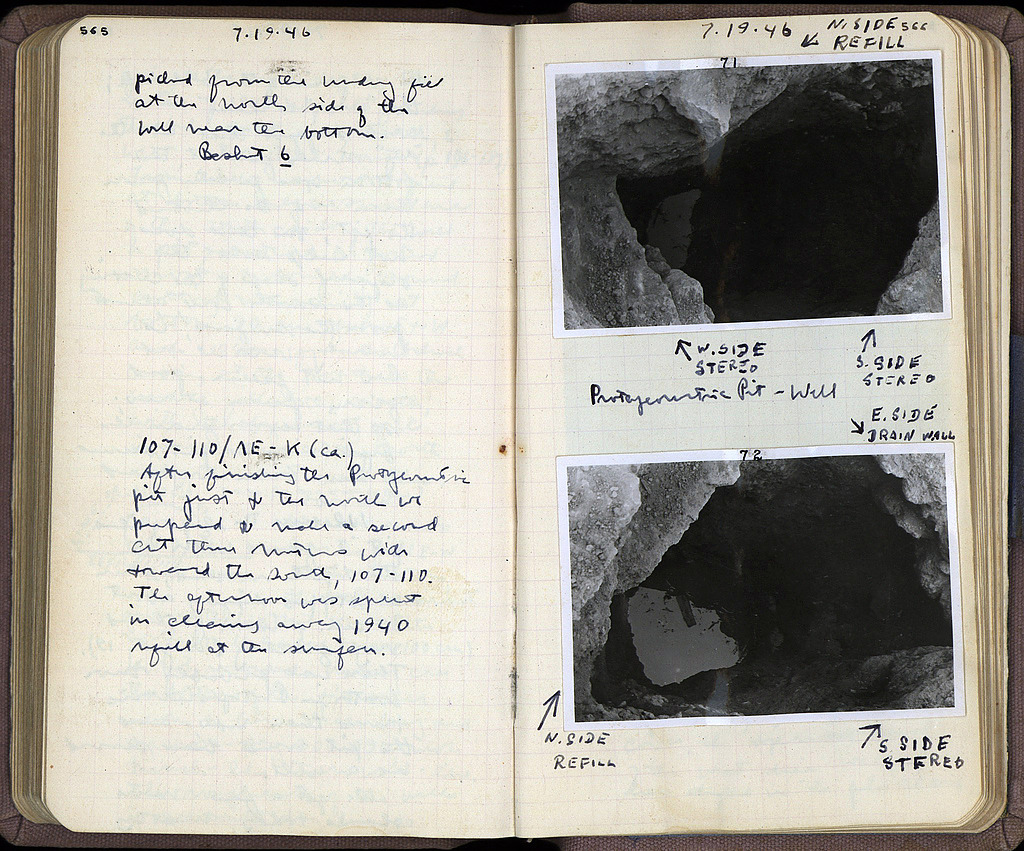 565
7.19.46
picked from the under fill
at the north side of the
well near the bottom.
Basket 6
107-110/ΛE-K (ca.)
After finishing the Protogeometric
pit just to the north we
prepared to make a second
cut three metres wide
toward the south, 107-110.
The afternoon was spent
in clearing away 1940
refill at the surface.
7.19.46
N. SIDE
REFILL
566
71
W. SIDE
STEREO
S. SIDE
STEREO
Protogeometric Pit - Well
E. SIDE
DRAIN WALL
72
N. SIDE
REFILL
S. SIDE
STEREO